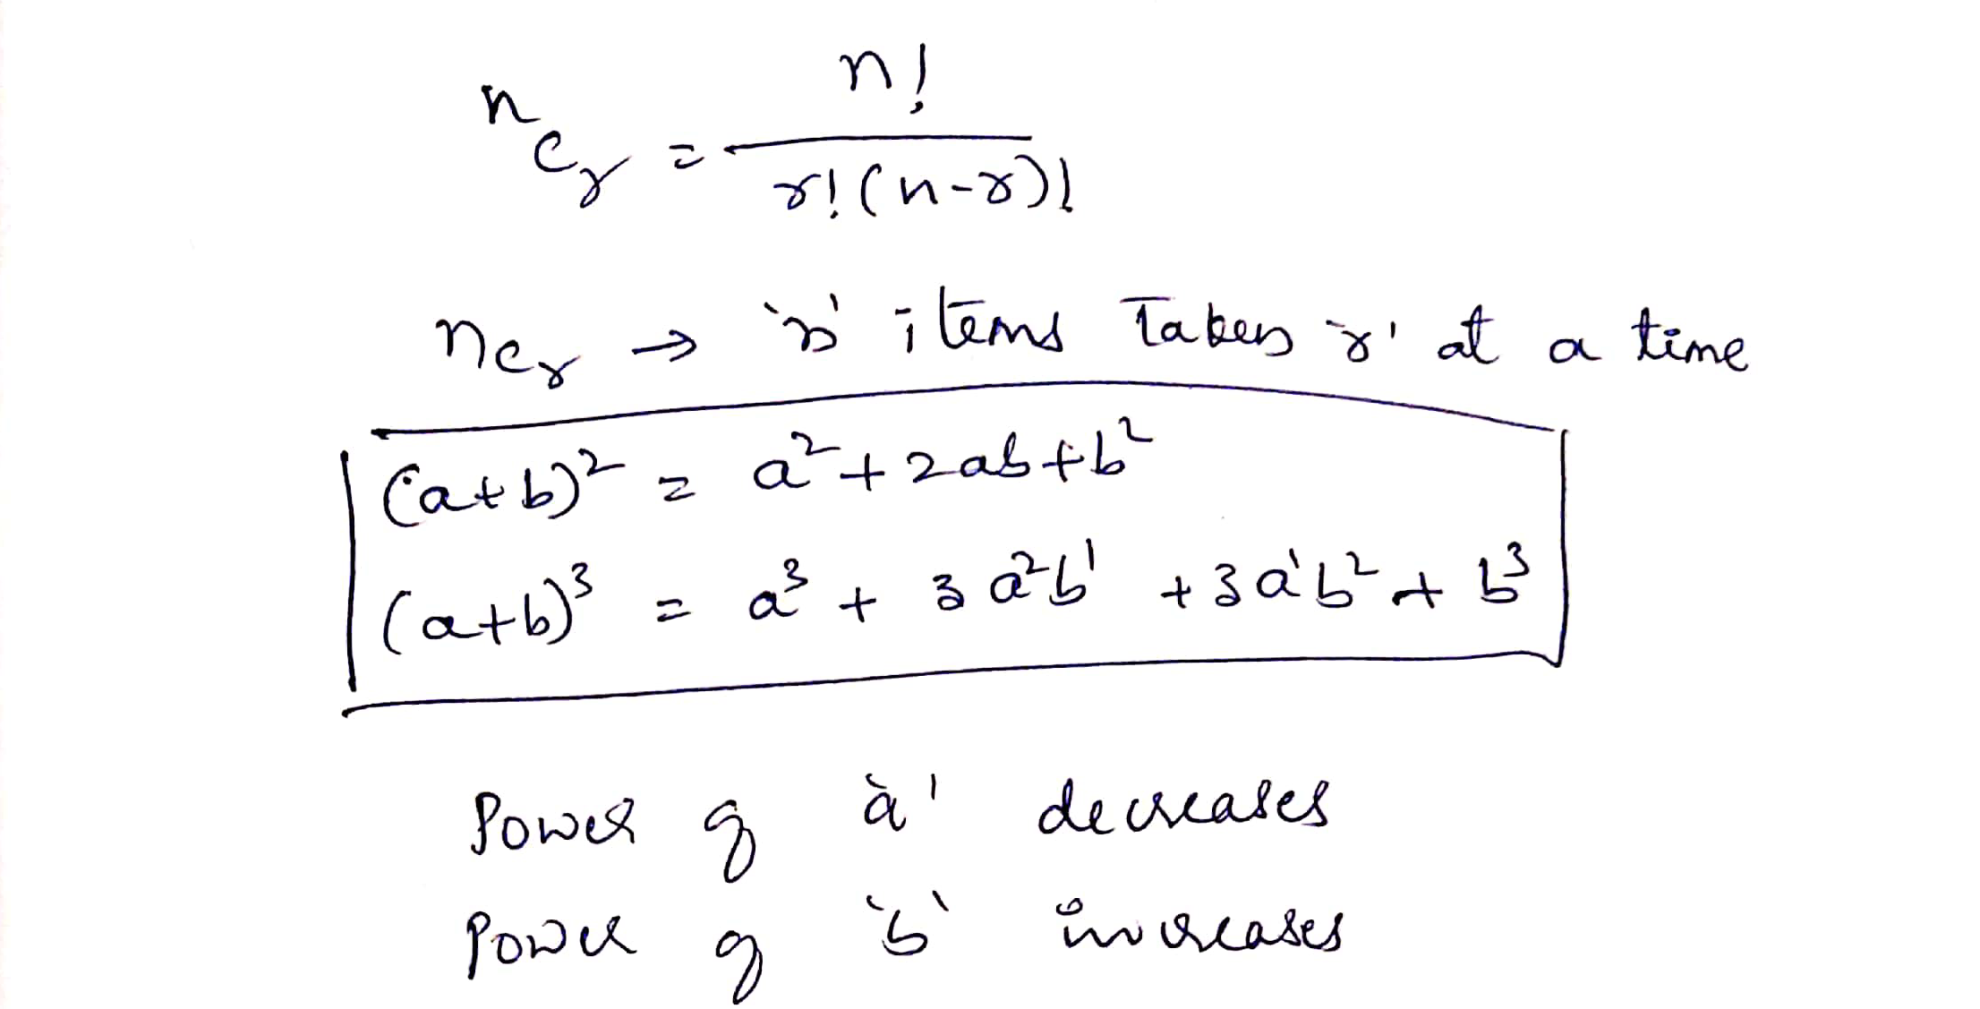 ⁿCᵣ = n! / r!(n-r)!
nCᵣ → 'n' items Taken 'r' at a time
(a+b)² = a² + 2ab + b²
(a+b)³ = a³ + 3a²b¹ + 3a¹b² + b³
Power of 'a' decreases
Power of 'b' increases